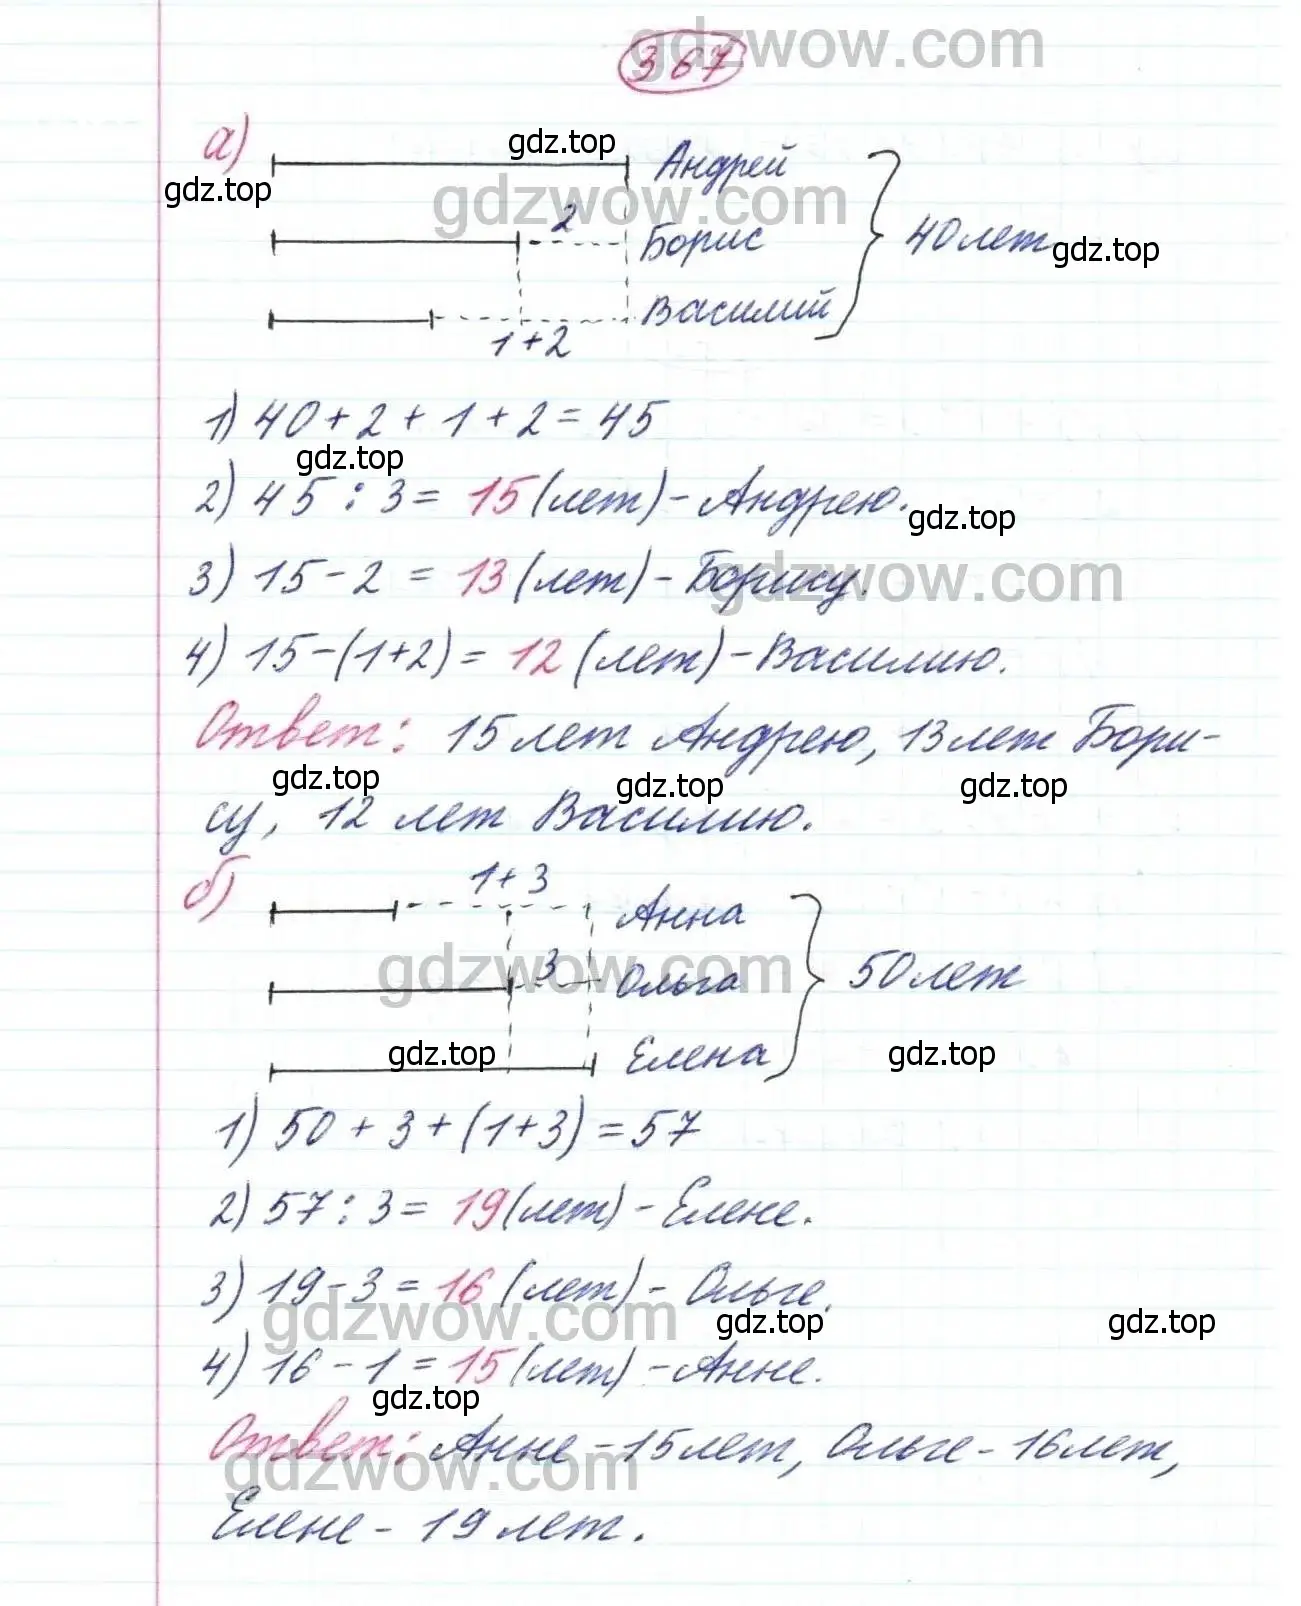 367
а)
Андрей
2
Борис
40 лет
Василий
1+2
1) 40 + 2 + 1 + 2 = 45
2) 45 : 3 = 15 (лет) - Андрею.
3) 15 - 2 = 13 (лет) - Борису.
4) 15 - (1+2) = 12 (лет) - Василию.
Ответ: 15 лет Андрею, 13 лет Бори-
су, 12 лет Василию.
б)
1+3
Анна
3
Ольга
50 лет
Елена
1) 50 + 3 + (1+3) = 57
2) 57 : 3 = 19 (лет) - Елене.
3) 19 - 3 = 16 (лет) - Ольге.
4) 16 - 1 = 15 (лет) - Анне.
Ответ: Анне - 15 лет, Ольге - 16 лет,
Елене - 19 лет.
gdzwow.com
gdz.top
gdz.top
gdzwow.com
gdz.top
gdz.top
gdz.top
gdzwow.com
gdz.top
gdz.top
gdz.top
gdzwow.com
gdz.top
gdz.top
gdzwow.com
gdz.top
gdz.top
gdz.top
gdzwow.com